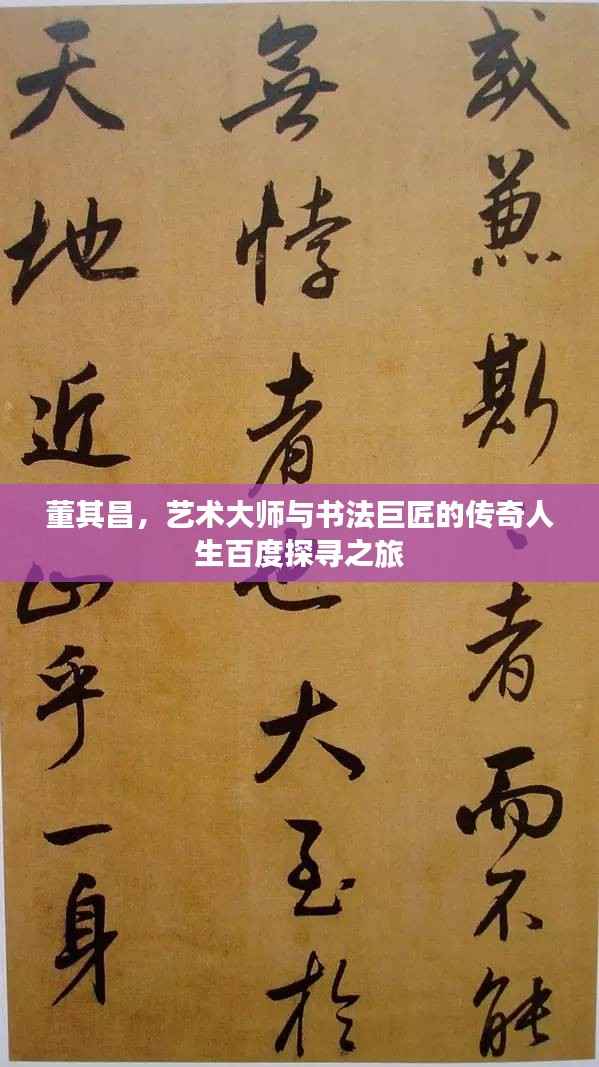 或兼斯者而不能
無悖者也大至於
天地近乎一身
董其昌，艺术大师与书法巨匠的传奇人
生百度探寻之旅